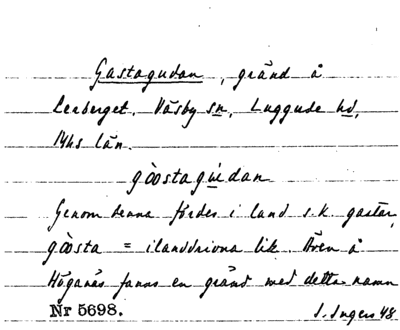 Gastagudan, gränd å
Lerberget. Väsby sn, Luggude hd,
Mhs län.
gòostagúdan
Genom denna fördes i land s.k. gastar,
gòosta = ilanddrivna lik. Även å
Höganäs fanns en gränd med detta namn
Nr 5698. I. Ingers 48